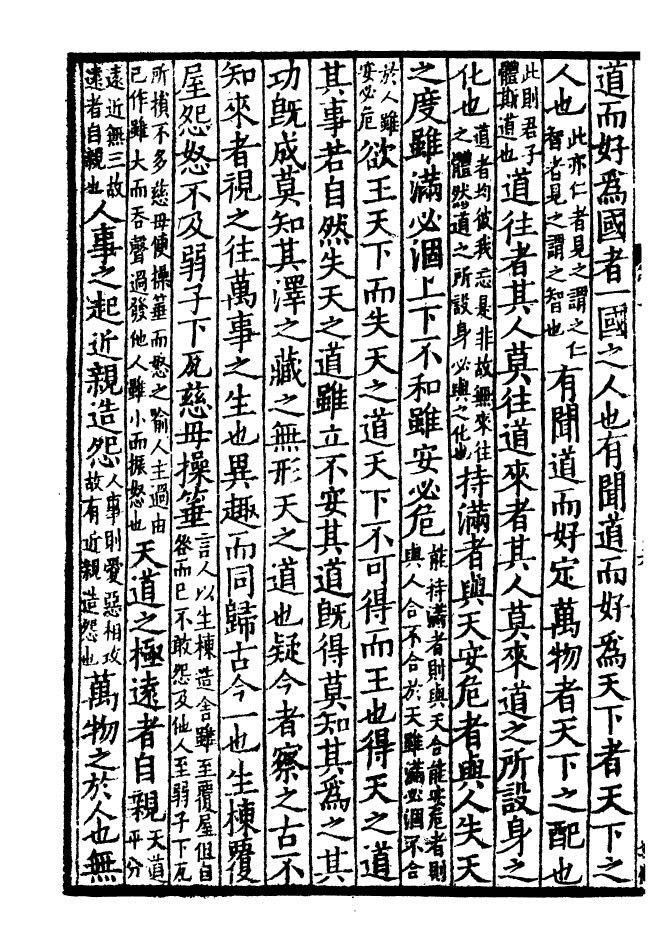 道而好爲國者一國之人也有聞道而好爲天下者天下之
人也此亦仁者見之謂之仁智者見之謂之智也有聞道而好定萬物者天下之配也
此則君子體斯道也道往者其人莫往道來者其人莫來道之所設身之
化也道者均彼我忘是非故無來往之體然道之所設身必與之化也持滿者與天安危者與人失天
之度雖滿必涸上下不和雖安必危能持滿者則與天合能安危者則與人合不合於天雖滿必涸不合
於人雖安必危欲王天下而失天之道天下不可得而王也得天之道
其事若自然失天之道雖立不安其道旣得莫知其爲之其
功旣成莫知其澤之藏之無形天之道也疑今者察之古不
知來者視之往萬事之生也異趣而同歸古今一也生棟覆
屋怨怒不及弱子下瓦慈母操箠言人以生棟造舍雖至覆屋但自咎而已不敢怨及他人至弱子下瓦
所損不多慈母便操箠而怒之喻人主過由己作雖大而吞聲過發他人雖小而振怒也天道之極遠者自親天道平分
遠近無三故遠者自親也人事之起近親造怨人事則愛惡相攻故有近親造怨也萬物之於人也無